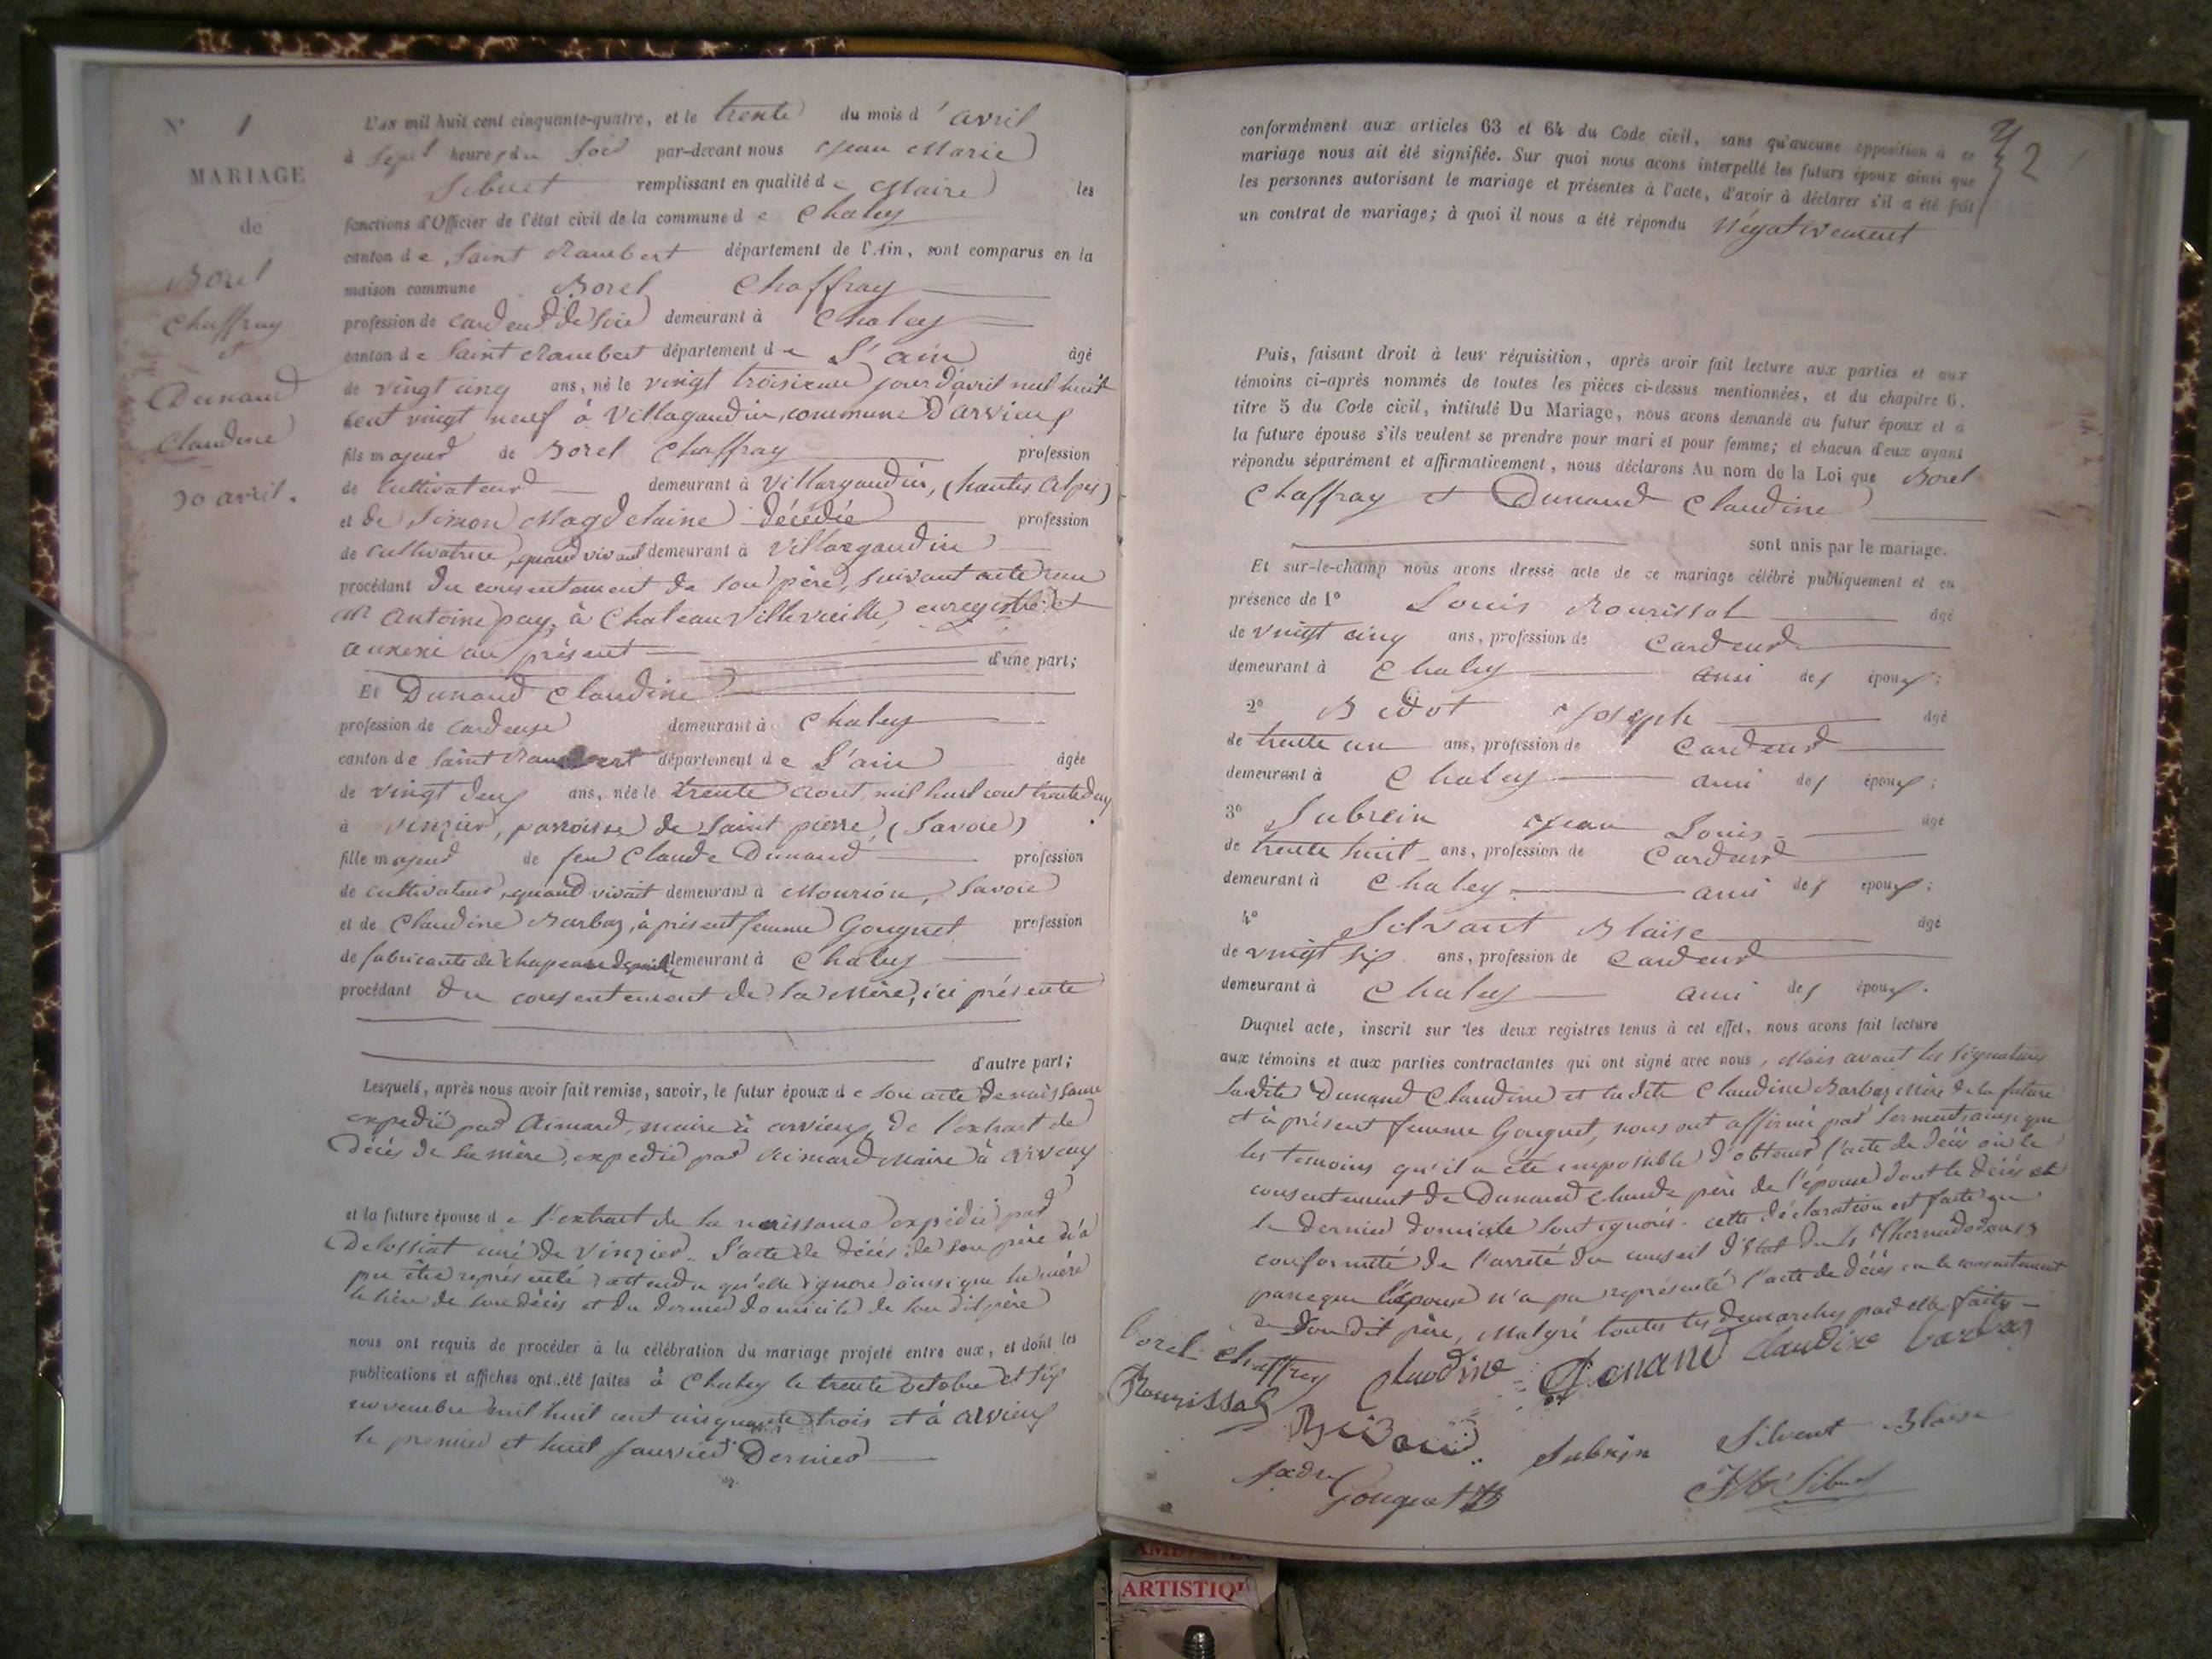 N° 1
MARIAGE
de
Borel
Chaffray
et
Dunand
Claudine
30 avril.
L'AN mil huit cent cinquante-quatre, et le trente du mois d'avril
à sept heures du soir par-devant nous Jean Marie
Sibuet remplissant en qualité de Maire les
fonctions d'Officier de l'état civil de la commune de Chaley
canton de Saint Rambert département de l'Ain, sont comparus en la
maison commune Borel Chaffray
profession de cardeur de soie demeurant à Chaley
canton de Saint Rambert département de L'ain âgé
de vingt cinq ans, né le vingt troisieme jour d'avril mil huit
cent vingt neuf à Villagaudin, commune D'arvieux
fils majeur de Borel Chaffray profession
de cultivateur demeurant à Villargaudin, (hautes alpes)
et de Simon Magdelaine décédée profession
de cultivatrice, quand vivait demeurant à Villargaudin
procédant du consentement de son père, suivant acte reçu
Mr Antoine pay, à Chateau Villevieille, enregistré et
annexé au présent d'une part;
Et Dunand Claudine
profession de cardeuse demeurant à Chaley
canton de Saint Rambert département de L'ain âgée
de vingt deux ans, née le trente aout mil huit cent trente deux
à Vinzier, parroisse de Saint pierre, (Savoie)
fille majeur de feu Claude Dunand profession
de cultivateur, quand vivait demeurant à Mourion, Savoie
et de Claudine Barbaz, à présent femme Gouguet profession
de fabricante de chapeau de paille demeurant à Chaley
procédant du consentement de sa Mère, ici présente
d'autre part;
Lesquels, après nous avoir fait remise, savoir, le futur époux de son acte de naissance
expedié par Aimard, maire à arvieux, de l'extrait de
Décès de sa mère, expedié par Aimard Maire à arvieux
et la future épouse de l'extrait de sa naissance expédié par
Delossiat curé de Vinzier. L'acte de décès de son père n'a
pu être représenté attendu qu'elle ignore ainsi que sa mère
le lieu de son décès et du dernier domicile de son dit père
nous ont requis de procéder à la célébration du mariage projeté entre eux, et dont les
publications et affiches ont été faites à Chaley le trente octobre et six
novembre mil huit cent cinquante trois et à arvieux
le premier et huit janvier Dernier
2
conformément aux articles 63 et 64 du Code civil, sans qu'aucune opposition à ce
mariage nous ait été signifiée. Sur quoi nous avons interpellé les futurs époux ainsi que
les personnes autorisant le mariage et présentes à l'acte, d'avoir à déclarer s'il a été fait
un contrat de mariage; à quoi il nous a été répondu Négativement
Puis, faisant droit à leur réquisition, après avoir fait lecture aux parties et aux
témoins ci-après nommés de toutes les pièces ci-dessus mentionnées, et du chapitre 6,
titre 5 du Code civil, intitulé Du Mariage, nous avons demandé au futur époux et à
la future épouse s'ils veulent se prendre pour mari et pour femme; et chacun d'eux ayant
répondu séparément et affirmativement, nous déclarons Au nom de la Loi que Borel
Chaffray et Dunand Claudine
sont unis par le mariage.
Et sur-le-champ nous avons dressé acte de ce mariage célébré publiquement et en
présence de 1° Louis Rourissol âgé
de vingt cinq ans, profession de Cardeur
demeurant à Chaley ami des époux;
2° Bidot Joseph âgé
de trente un ans, profession de Cardeur
demeurant à Chaley ami des époux;
3° Subrein Jean Louis âgé
de trente huit ans, profession de Cardeur
demeurant à Chaley ami des époux;
4° Silvant Blaise âgé
de vingt six ans, profession de Cardeur
demeurant à Chaley ami des époux.
Duquel acte, inscrit sur les deux registres tenus à cet effet, nous avons fait lecture
aux témoins et aux parties contractantes qui ont signé avec nous, Mais avant les signatures
ladite Dunand Claudine et ladite Claudine Barbaz Mère de la future
et à présent femme Gouguet, nous ont affirmé par serment, ainsi que
les temoins qu'il a été impossible d'obtenir l'acte de décès ou le
consentement de Dunand Claude père de l'épouse dont le décès et
le dernier domicile sont ignorés. cette déclaration est faite en
conformité de l'arrêté du conseil d'Etat du 4 Thermidor an 13
parceque l'épouse n'a pu représenté l'acte de décès ou le consentement
de son dit père, Malgré toutes les demarches par elle faites
borel chaffrey Claudine Donand claudine barbaz
Rourissol
Bidau Subrin Silvent Blaise
Gouguet
JM Sibuet
AMBIANCE
ARTISTIQU